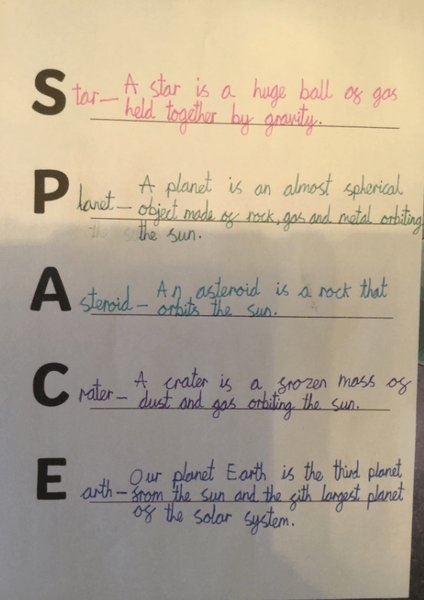 Star— A star is a huge ball of gas
held together by gravity.
Planet— A planet is an almost spherical
object made of rock, gas and metal orbiting
the sun.
Asteroid— An asteroid is a rock that
orbits the sun.
Crater— A crater is a frozen mass of
dust and gas orbiting the sun.
Earth— Our planet Earth is the third planet
from the sun and the fith largest planet
of the solar system.